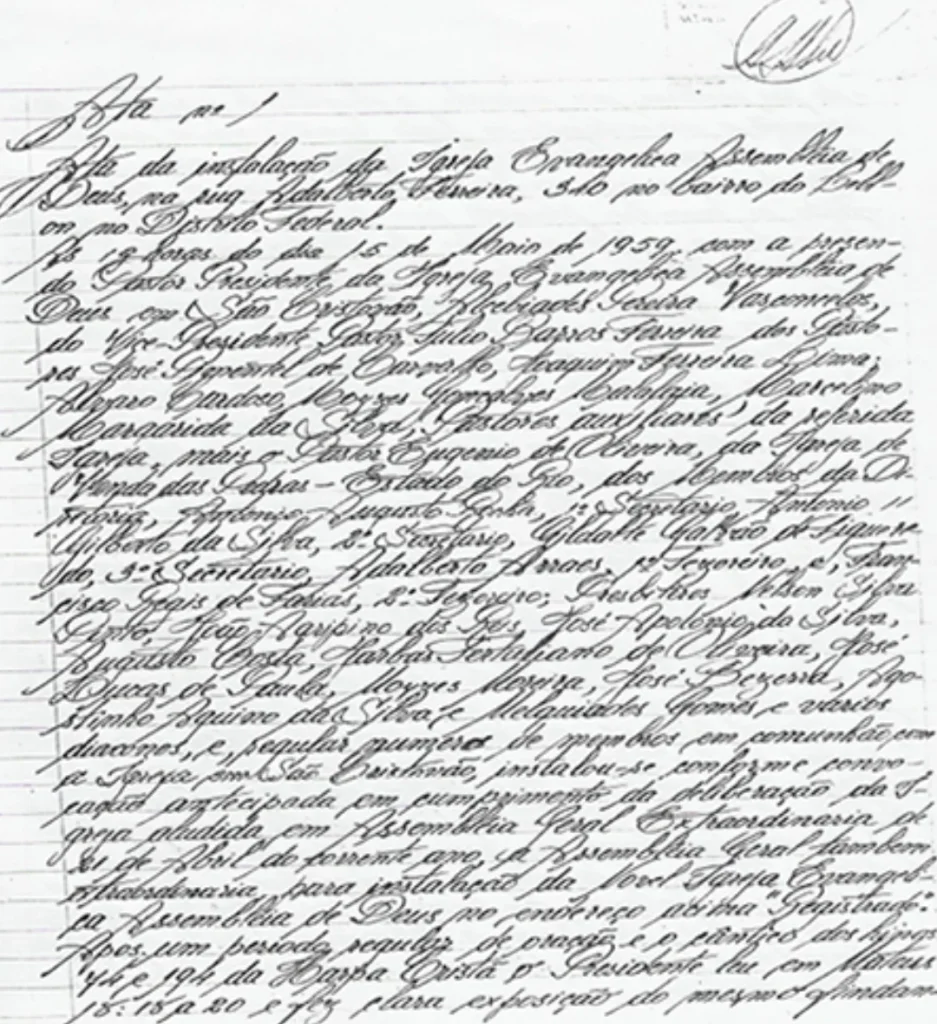 Ata nº 1
Ata da instalação da Igreja Evangelica Assembléia de
Deus, na rua Adalberto Ferreira, 340 no bairro do Lebl-
on no Distrito Federal.
As 19 horas do dia 15 de Maio de 1959, com a presen-
do Pastor Presidente da Igreja Evangelica Assembléia de
Deus em São Cristovão, Alcebiades Pereira Vasconcelos,
do Vice-Presidente Pastor Tulio Barros Ferreira dos Pasto-
res José de Carvalho, Joaquim Ferreira Lima;
Alvaro Cardoso, Moyzes Gonçalves Malafaia, Marcelino
Margarida da Silva, Pastores auxiliares da referida
Igreja, mais o Pastor Eugenio de Oliveira, da Igreja de
Venda das Pedras - Estado do Rio, dos Membros da Di-
retoria, Antonio Augusto Rocha, 1º Secretario, Antonio
Gilberto da Silva, 2º Secretario, Gildalte Galvão de Figuere-
do, 3º Secretario, Adalberto Arraes, 1º Tezoreiro, e, Fran-
cisco Regis de Farias, 2º Tezoreiro; Presbiteros Nelson Silva
Pinto, João Agripino dos Reis, José Apolonio da Silva,
Augusto Costa, Tertuliano de Oliveira, José
Lucas de Paula, Moyzes Moreira, José Bezerra, Ago-
stinho Aquino da Silva, e Melquiades Gomes e varios
diaconos, e, regular numero de membros em comunhão com
a Igreja em São Cristovão, instalou-se conforme convo-
cação antecipada em cumprimento da deliberação da I-
greja aludida em Assembléia Geral Extraordinaria de
21 de Abril do corrente ano, a Assembléia Geral tambem
extraordinaria, para instalação da Novel Igreja Evangeli-
ca Assembléia de Deus no endereço acima "Registrado".
Apos um periodo regular de oração e o cântico dos hinos
44 e 194 da Harpa Cristã o Presidente leu em Mateus
18:18 a 20 e fez clara exposição do mesmo